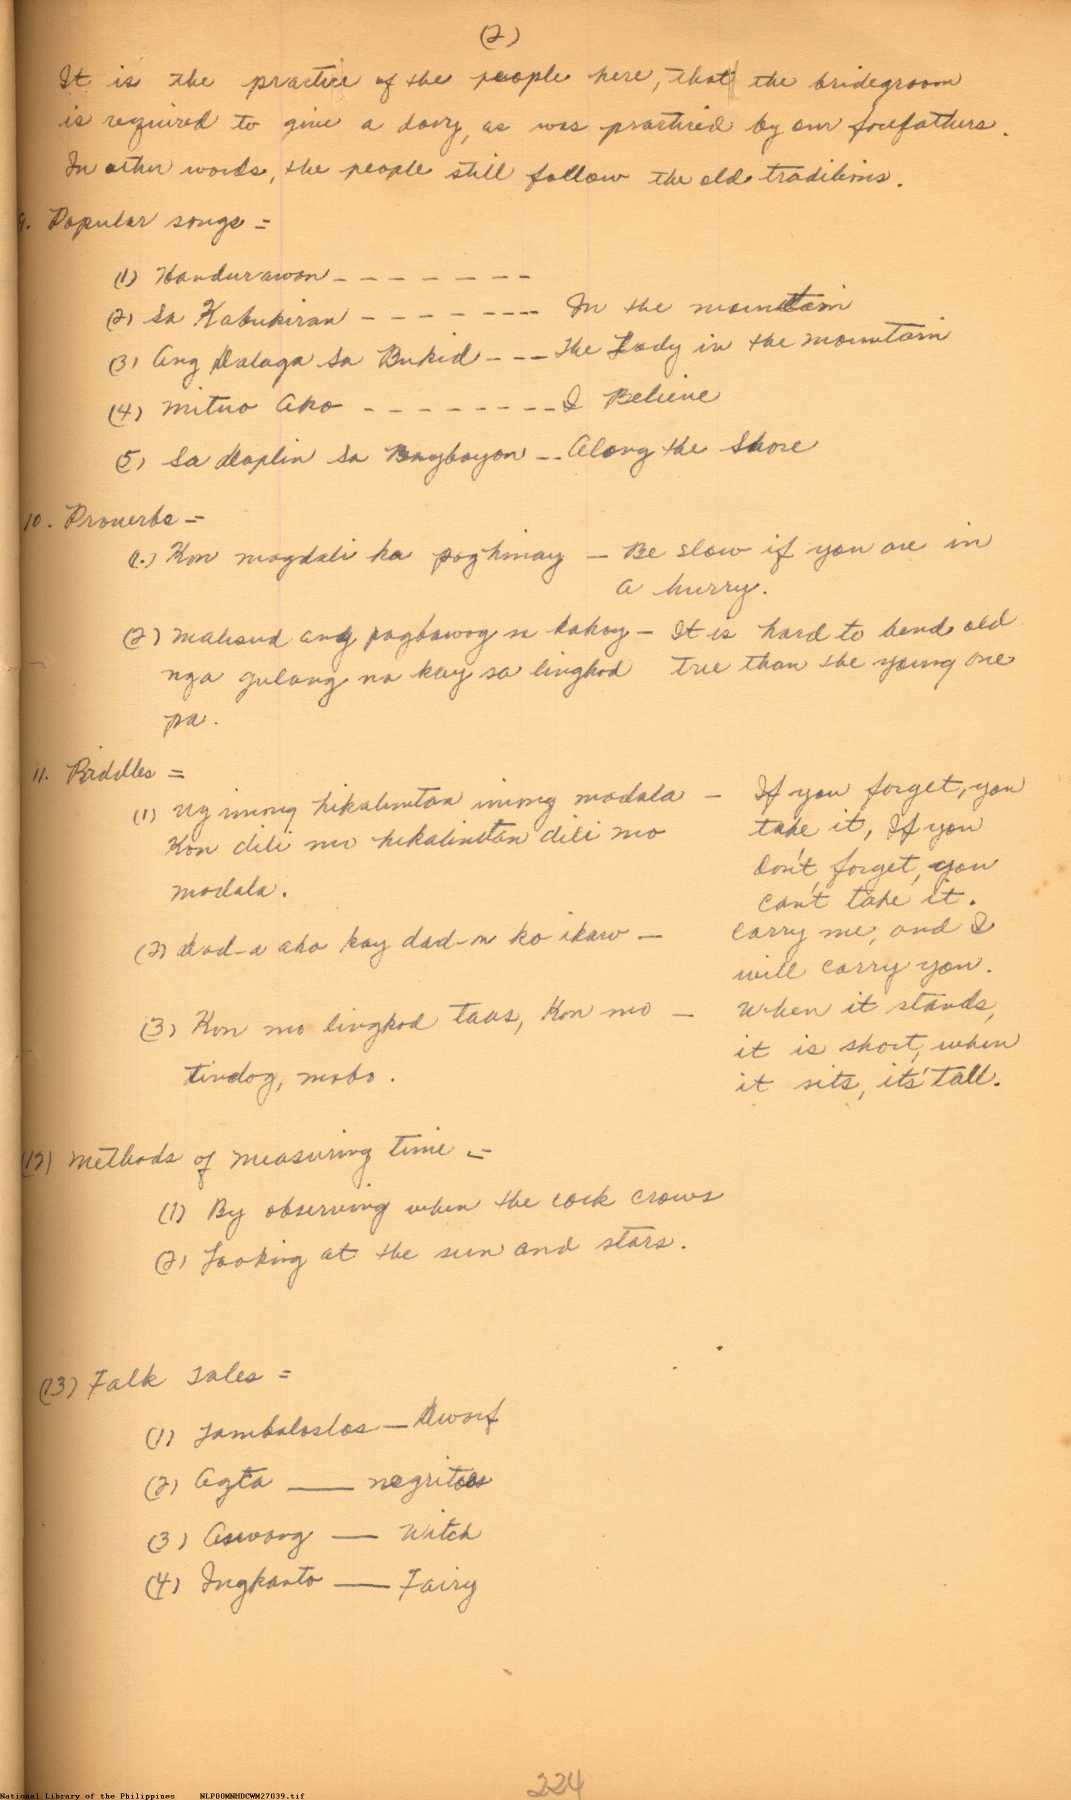 (2)
It is the practice of the people here, that the bridegroom
is required to give a dowry, as was practiced by our forefathers.
In other words, the people still follow the old traditions.
9. Popular songs =
(1) Handurawan - - - - - - - -
(2) Sa Kabukiran - - - - - - - - In the mountain
(3) Ang Dalaga Sa Bukid - - - The Lady in the mountain
(4) Mituo Ako - - - - - - - - - I Believe
(5) Sa daplin sa Baybayon - - Along the Shore
10. Proverbs =
(1.) Kon magdali ka paghinay - Be slow if you are in
a hurry.
(2) Malisud ang pagbawog sa kahoy - It is hard to bend old
nga gulang na kay sa lingkod tree than the young one
pa.
11. Riddles =
(1) Ug imong hikalimtan imong madala - If you forget, you
Kon dili mo hikalimtan dili mo take it, If you
madala. don't forget, you
can't take it.
(2) dad-a ako kay dad-on ko ikaw - Carry me, and I
will carry you.
(3) Kon mo lingkod taas, Kon mo - When it stands,
tindog, mobo. it is short, when
it sits, its' tall.
(12) Methods of measuring time =
(1) By observing when the cock crows
(2) Looking at the sun and stars.
(13) Folk Tales =
(1) Tambaloslos - Dwarf
(2) Agta - negritoes
(3) Aswang - Witch
(4) Ingkanto - Fairy
224
National Library of the Philippines NLPOOMNHDCWM27039.tif